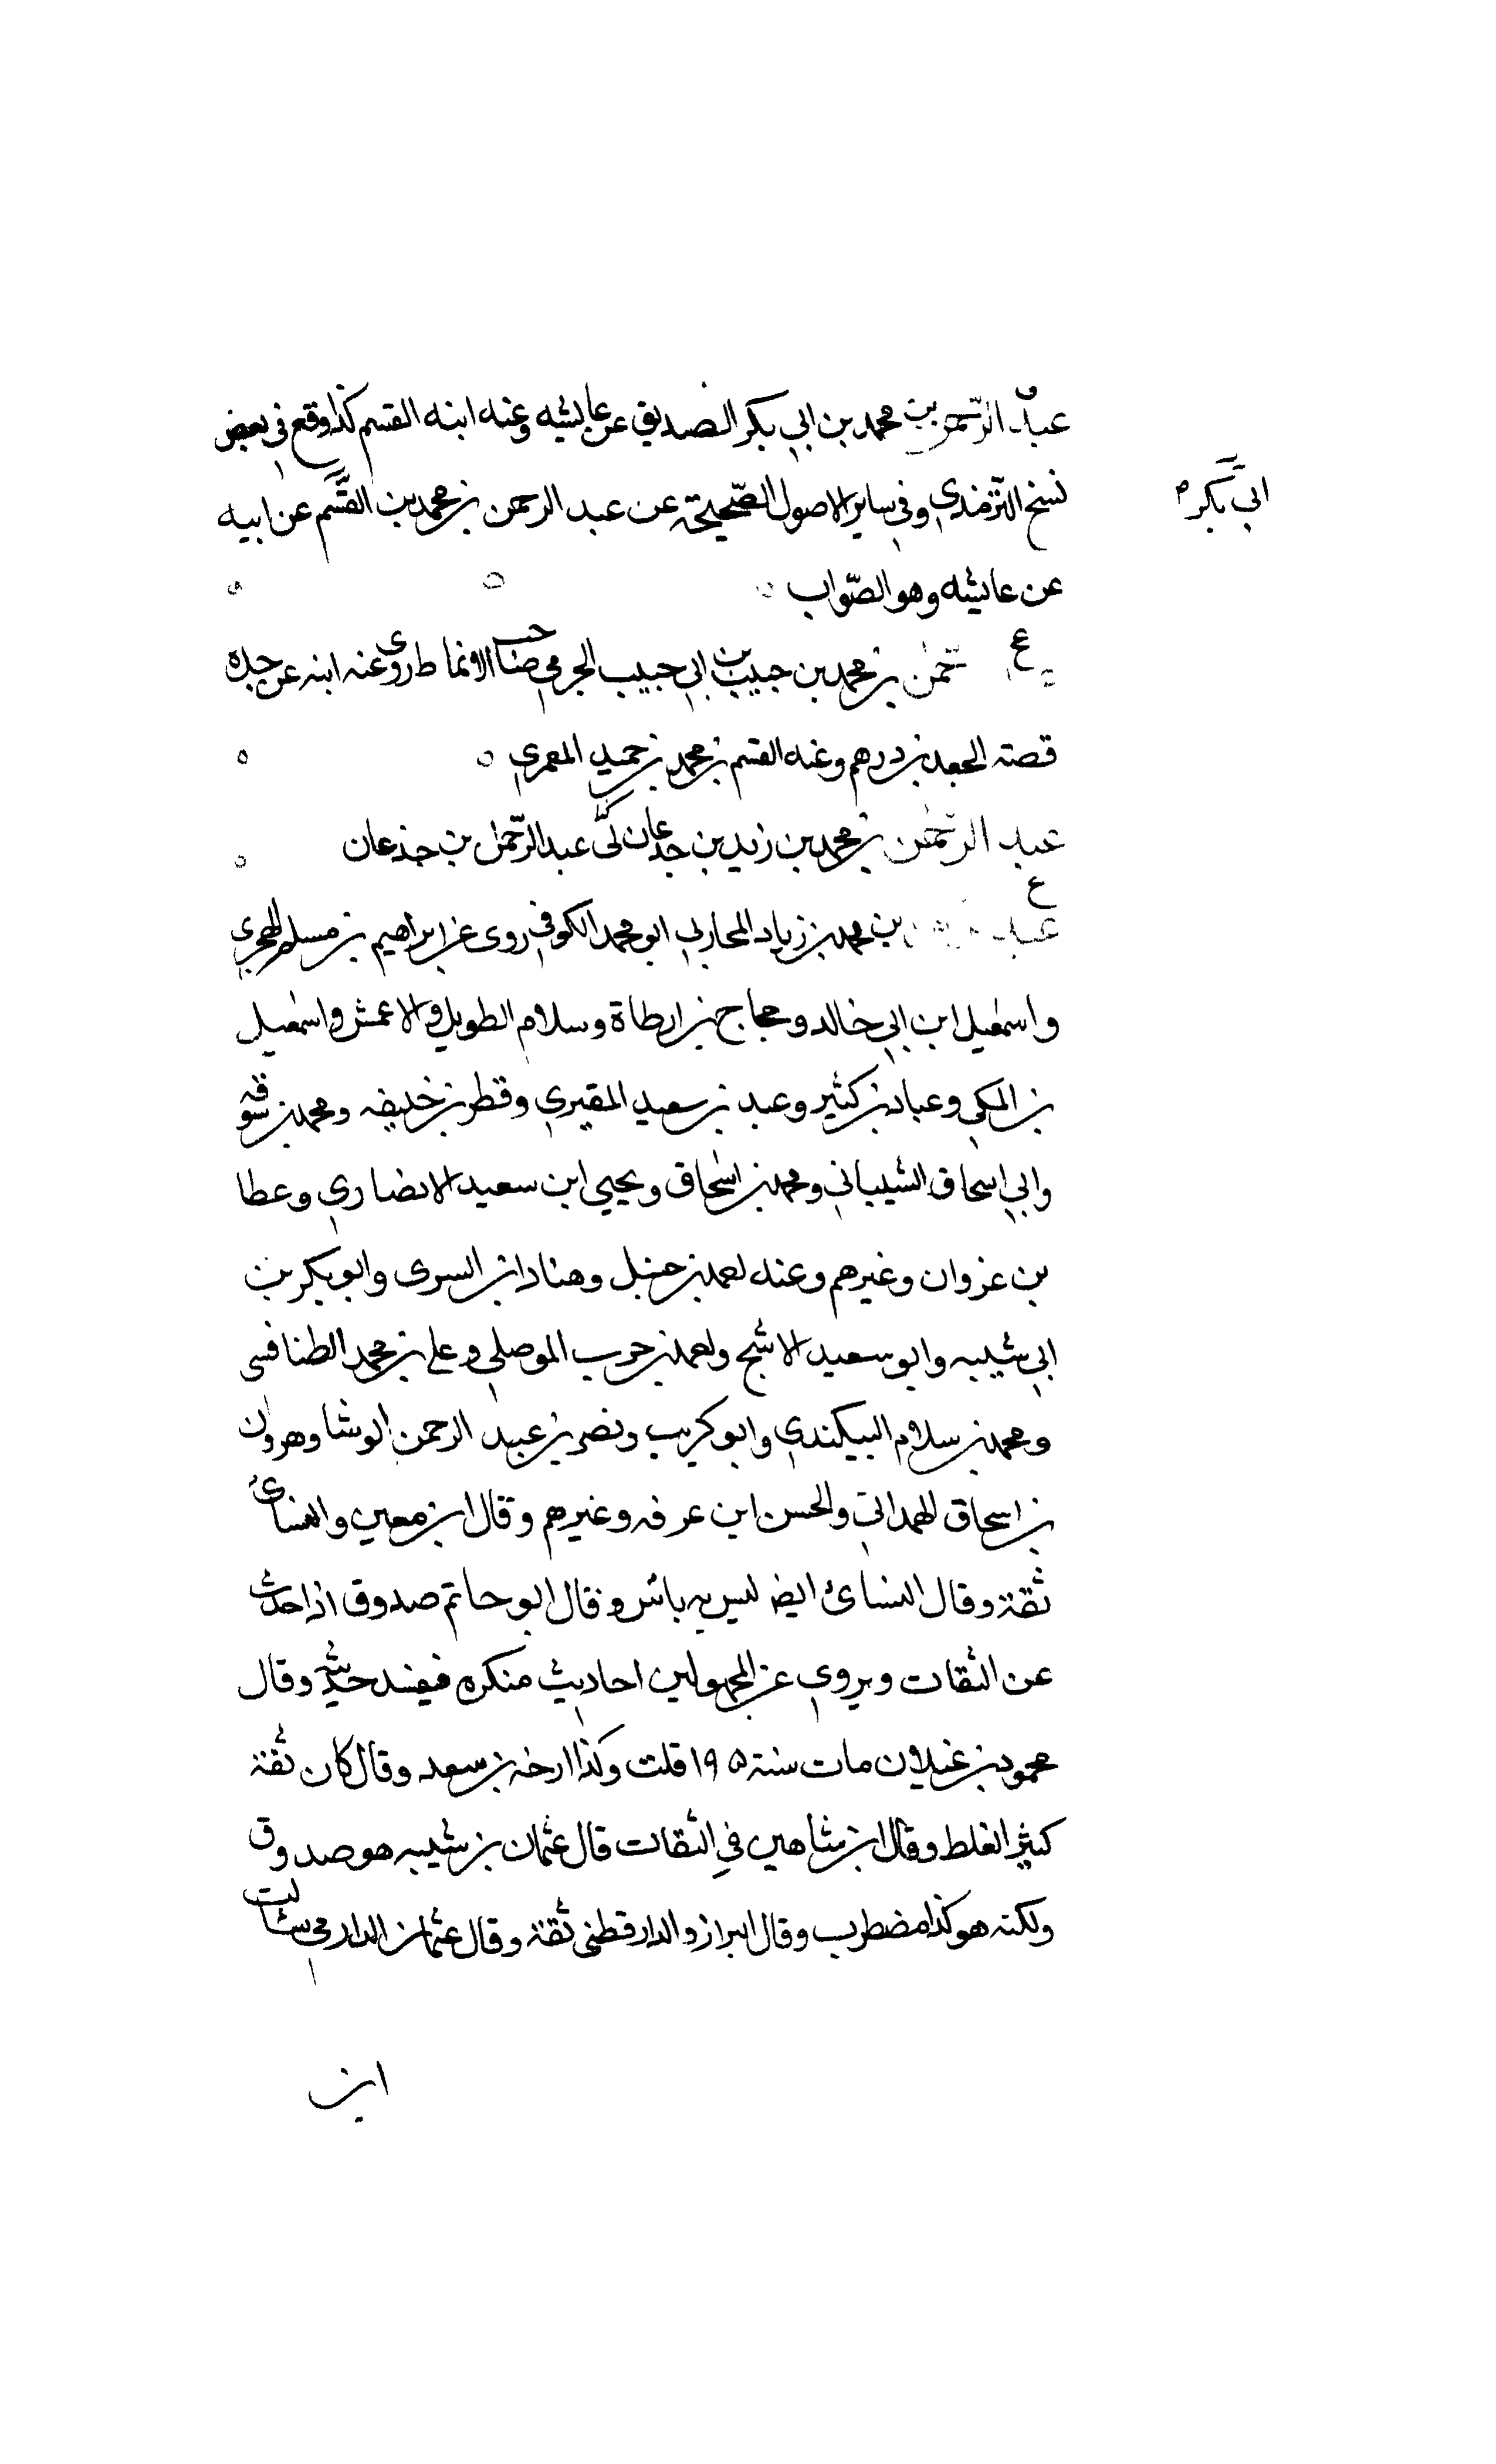 عبد الرحمن بن محمد بن ابي بكر الصديق عن عايشه وعنه ابنه القسم كذا وقع في بعض
نسخ الترمذي وفي ساير الاصول الصحيحة عن عبد الرحمن بن محمد بن القسم عن ابيه
ابي بكر
عن عايشه وهو الصواب
عخ
حمن بن محمد بن حبيب بن ابي حبيب الجرمي صاحب الانماط روى عنه ابنه عن جده
قصة الجعد بن درهم وعنه القسم بن محمد بن حميد المعمري
عبد الرحمن بن محمد بن زيد بن جدعان عبد الرحمن بن جدعان
ع
عبد بن محمد بن زياد المحاربي ابو محمد الكوفي روى عن ابراهيم بن مسلم الهجري
واسمعيل ابن ابي خالد وحجاج بن ارطاة وسلام الطويل والاعمش واسمعيل
بن المكي وعباد بن كثير وعبد بن سعيد المقبري وقطر بن خليفه ومحمد بن سوقه
وابي اسحاق الشيباني ومحمد بن اسحاق ويحيي ابن سعيد الانصاري وعطا
بن غزوان وغيرهم وعنه احمد بن حنبل وهناد ابن السرى وابو بكر بن
ابي شيبه وابو سعيد الاشج واحمد بن حرب الموصلي وعلي بن محمد الطنافسى
ومحمد بن سلام البيكندي وابو كريب ونصر بن عبد الرحمن الوشا وهرون
بن اسحاق الهمداني والحسن ابن عرفه وغيرهم وقال ابن معين والنسائ
ثقة وقال النسائ ايضا ليس به باس وقال ابو حاتم صدوق اذا حدث
عن الثقات ويروي عن المجهولين احاديث منكره فيفسد حديثه وقال
محمود بن غيلان مات سنة ١٩٥ قلت وكذا ارخه بن سعد وقال كان ثقة
كثير الغلط وقال ابن شاهين في الثقات قال عثمان بن شيبه هو صدوق
ولكنه هو كذا مضطرب وقال البزاز والدارقطنى ثقة وقال عثمان الدارمي سئالت
ابن